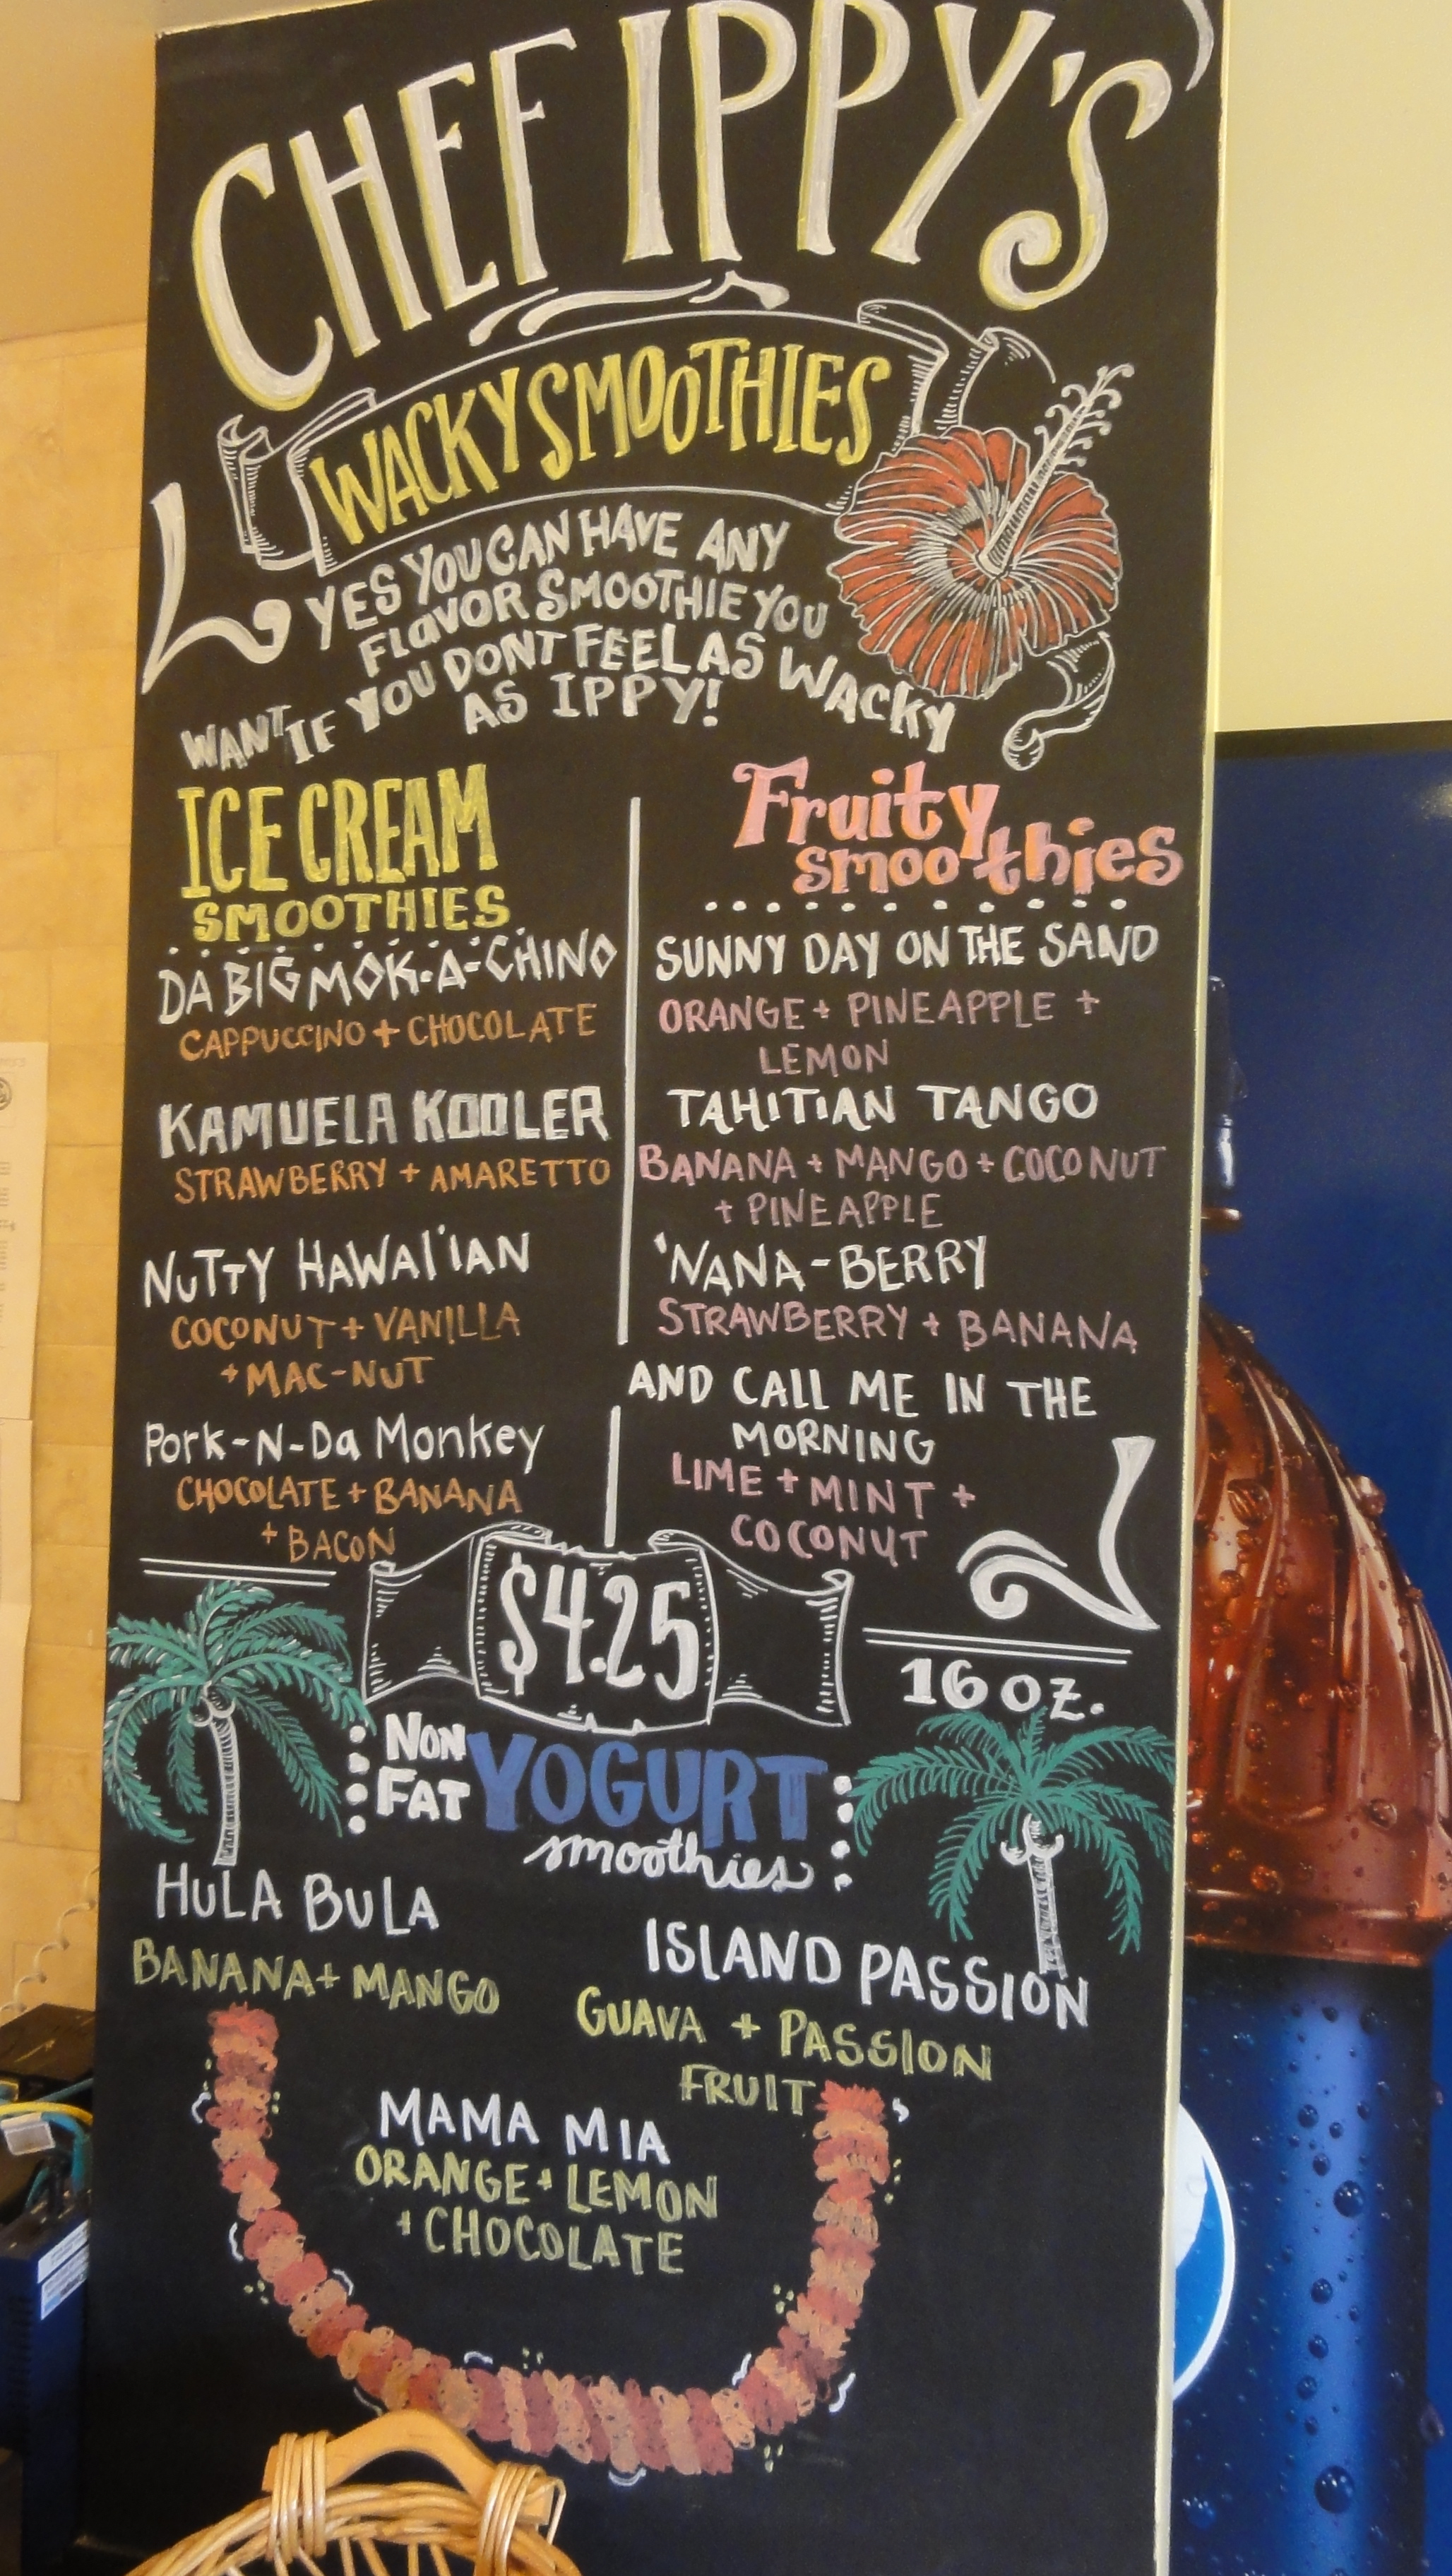 CHEF IPPY'S
WACKY SMOOTHIES
YES YOU CAN HAVE ANY
FLAVOR SMOOTHIE YOU
WANT IF YOU DONT FEEL AS WACKY
AS IPPY!
ICE CREAM
SMOOTHIES
DA BIG MOK-A-CHINO
CAPPUCCINO + CHOCOLATE
KAMUELA KOOLER
STRAWBERRY + AMARETTO
NUTTY HAWAI'IAN
COCONUT + VANILLA
+ MAC-NUT
Pork-N-Da Monkey
CHOCOLATE + BANANA
+ BACON
Fruity
smoothies
SUNNY DAY ON THE SAND
ORANGE + PINEAPPLE +
LEMON
TAHITIAN TANGO
BANANA + MANGO + COCONUT
+ PINEAPPLE
'NANA-BERRY
STRAWBERRY + BANANA
AND CALL ME IN THE
MORNING
LIME + MINT +
COCONUT
$4.25
16 OZ.
NON
FAT YOGURT
smoothies
HULA BULA
BANANA + MANGO
ISLAND PASSION
GUAVA + PASSION
FRUIT
MAMA MIA
ORANGE + LEMON
+ CHOCOLATE